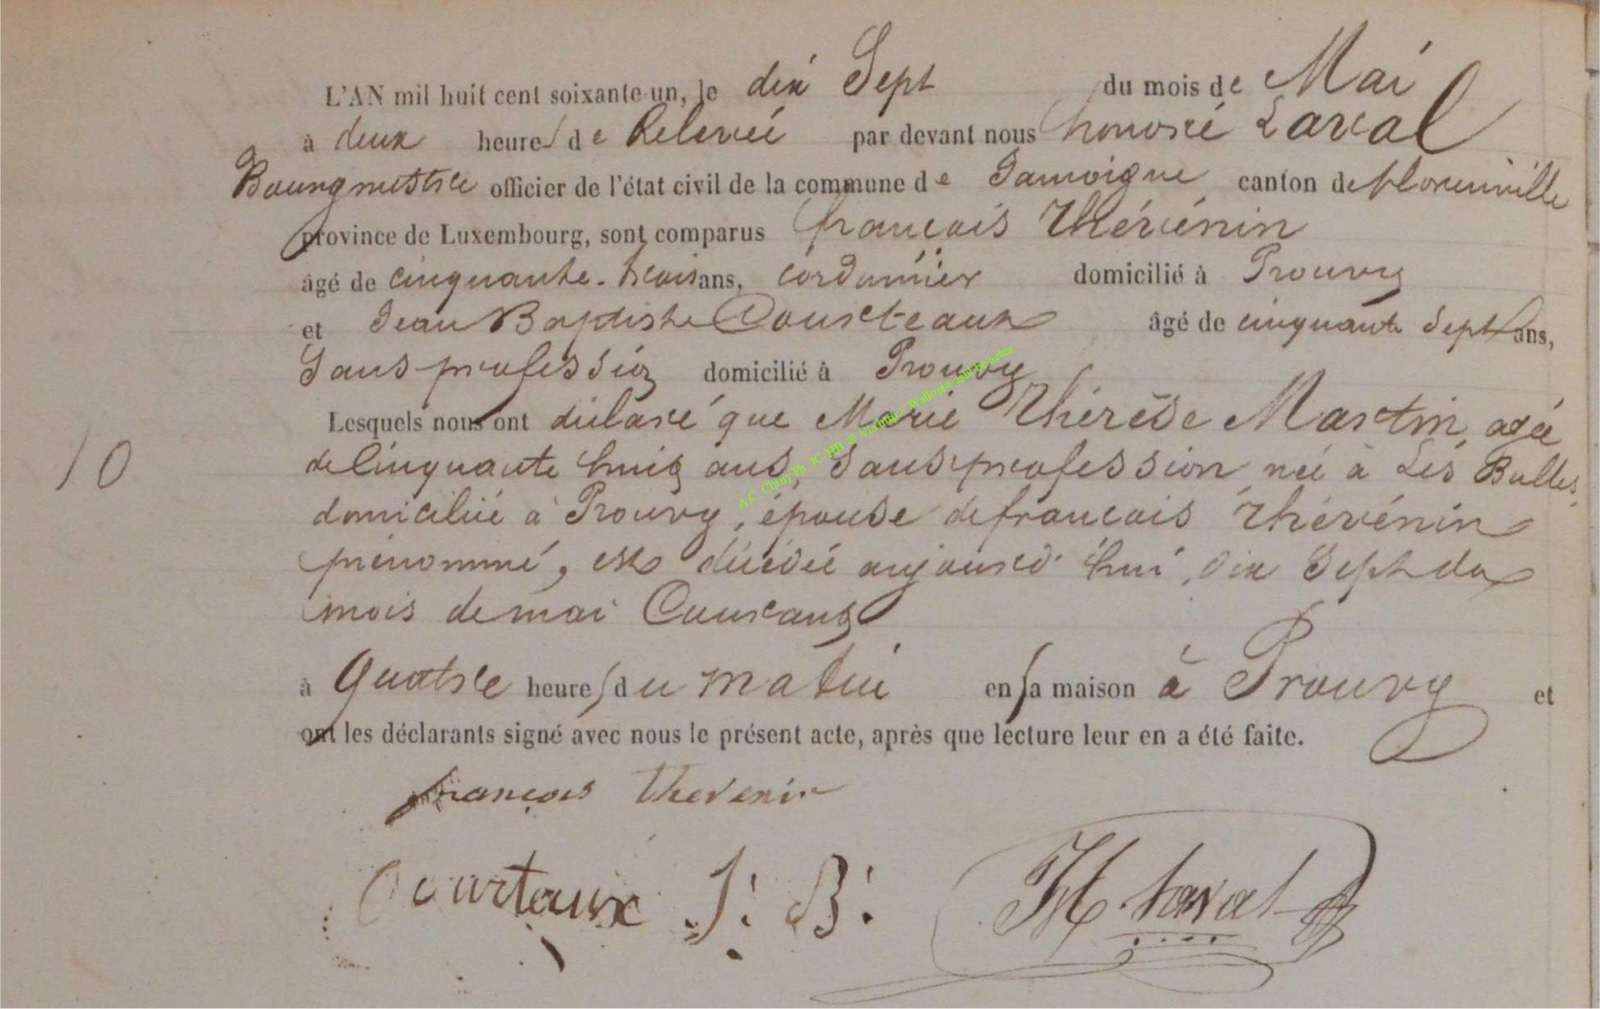 L'AN mil huit cent soixante-un, le dix Sept du mois de Mai
à deux heures de Relevée par devant nous honoré Laval
Bourgmestre officier de l'état civil de la commune de Jamoigne canton de florenville
province de Luxembourg, sont comparus françois Thévénin
âgé de cinquante-trois ans, cordonnier domicilié à Prouvy
et Jean Baptiste Courteaux âgé de cinquante Sept ans,
Sans profession domicilié à Prouvy
Lesquels nous ont déclaré que Marie Thérèse Martin, agée
10 de Cinquante huit ans, Sans profession née à Les Bulles,
domiciliée à Prouvy, épouse de françois Thévénin
prénommé, est décédée aujourd'hui, dix Sept du
mois de mai Courant
à Quatre heures du matin en sa maison à Prouvy et
ont les déclarants signé avec nous le présent acte, après que lecture leur en a été faite.
françois thevenin
Courtaux J: B: H Laval